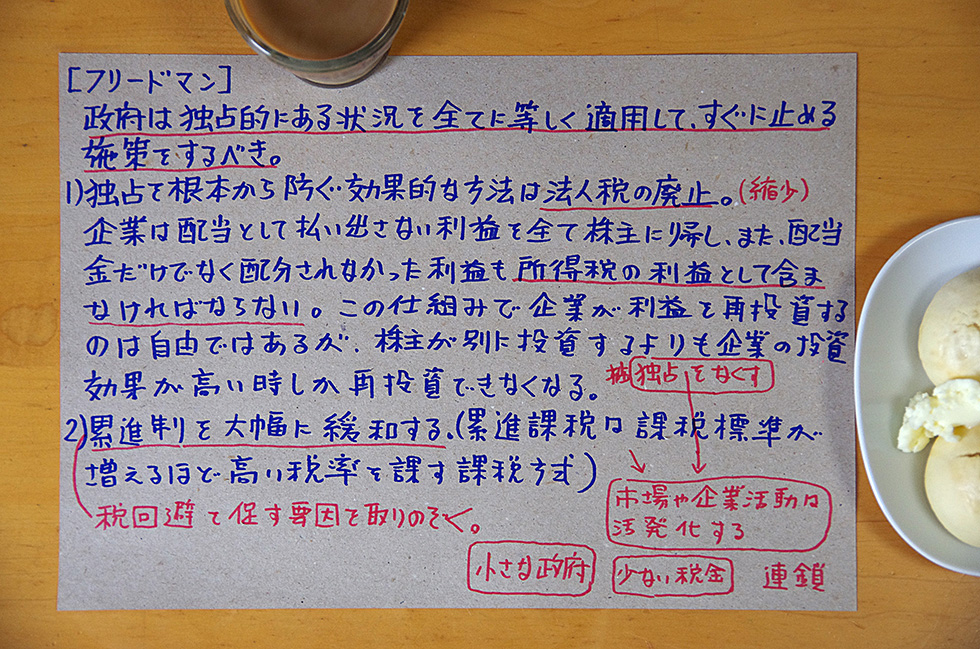 [フリードマン]
政府は独占的にある状況を全てに等しく適用して、すぐに止める
施策をするべき。
1)独占を根本から防ぐ効果的な方法は法人税の廃止。(縮少)
企業は配当として払い出さない利益を全て株主に帰し、また、配当
金だけでなく配分されなかった利益も所得税の利益として含ま
なければならない。この仕組みで企業が利益を再投資する
のは自由ではあるが、株主が別に投資するよりも企業の投資
効果が高い時しか再投資できなくなる。
独占をなくす
2)累進制を大幅に緩和する。(累進課税は課税標準が
増えるほど高い税率を課す課税方式)
市場や企業活動は
活発化する
税回避を促す要因を取りのぞく。
小さな政府 少ない税金 連鎖